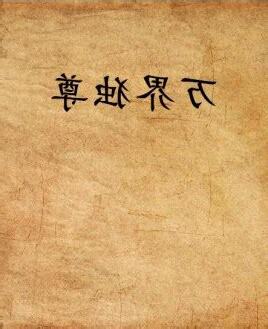 万界独尊